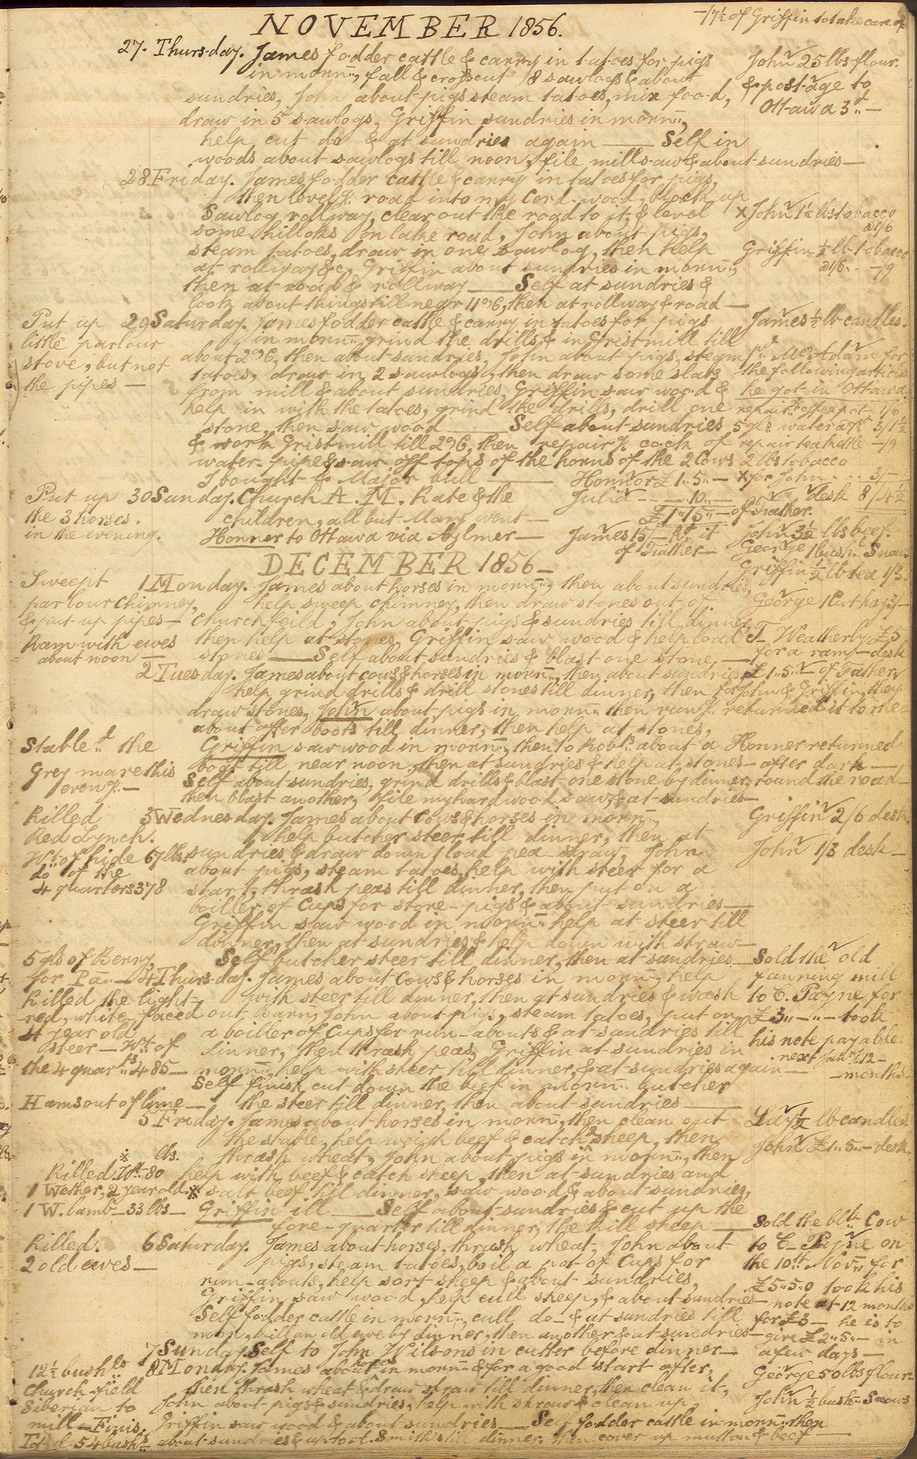 NOVEMBER 1856.
- 17½ of Griffin to take care of
27. Thursday. James fodder cattle & carry in tatoes for pigs
in morn:g, fall & crosscut 18 sawlogs & about
sundries, John about pigs steam tatoes, mix food,
draw in 5 sawlogs, Griffin sundries in morn:g,
help cut do & at sundries again — Self in
woods about sawlogs till noon, file millsaw & about sundries —
John 25 lbs flour
& postage to
Ottawa 3d —
28 Friday. James fodder cattle & carry in tatoes for pigs,
then level:g road into my cord-wood, block up
sawlog rollway, clear out the road to it, & level
some hillocks on lake road, John about pigs,
steam tatoes, draw in one sawlog, then help
at rollway &c, Griffin about sundries in morn:g,
then at road & rollway — Self at sundries &
look about things till near 11 o'c, then at rollway & road —
x John 1½ lbs tobacco
2/6
Griffin ½ lb tobacco
2/6 - -/9
Put up
little parlour
stove, but not
the pipes —
29 Saturday. James fodder cattle & carry in tatoes for pigs
in morn:g, grind the drills, & in Gristmill till
about 2 o'c, then about sundries, John about pigs, steam
tatoes, draw in 2 sawlogs, then draw some slabs
from mill & about sundries, Griffin saw wood &
help in with the tatoes, grind the drills, drill one
stone, then saw wood — Self about sundries
& work Gristmill till 2 o'c, then repair:g cock of
water-pipe & saw off tops of the horns of the 2 Cows
I bought & Major bull —
James ½ lb candles.
Pd McAdam for
the following articles
he got in Ottawa
repair:g coffee pot - 1/6
5 gls water 3/1½
repair teakettle - -/9
2 lbs tobacco
x for John . . . 3/-
desk 8/4½
Put up
the 3 horses.
in the evening.
30 Sunday. Church A.M. Kate & the
children, all but Mary went —
Honner to Ottawa via Aylmer —
Honnor £1..5..-
Julia — 10..-
£1..15..- of Father.
James 15/- Rd it
of Father —
John 3½ lbs beef.
George 1 bush: Snow
Griffin ½ lb tea 1/3.
DECEMBER 1856 —
Sweept
parlour chimney,
& put up pipes —
Ram with ewes
about noon —
1 Monday. James about horses in morn:g, then about sundries,
help sweep chimney, then draw stones out of
Church feild, John about pigs & sundries till dinner
then help at stones, Griffin saw wood & help load
stones — Self about sundries & blast one stone, —
T. Weatherby £5
for a ram - desk
2 Tuesday. James about cows & horses in morn:g, then about sundries
help grind drills & drill stones till dinner, then
draw stones, John about pigs in morn:g then run:g
about after boots till dinner, then help at stones,
Griffin saw wood in morn:g, then to Rob:ts about a
boots till near noon, then at sundries & help at stones —
Self about sundries, grind drills & blast one stone by dinner,
then blast another, & file my hardwood saw, & at sundries —
£1..5..- of Father
for John & Griffin, they
returned it to me
Honner returned
after dark —
round the road —
Stable:d the
Grey mare this
even:g —
Killed
Red Lynch.
Wt of hide 67 lbs
do of the
4 quarters 378
3 Wednesday. James about Cows & horses in morn:g,
help butcher steer till dinner, then at
sundries & draw down 1 load pea straw, John
about pigs, steam tatoes, help with steer for a
start, thrash peas till dinner, then put on a
boiler of Cups for store-pigs & about sundries —
Griffin saw wood in morn:g help at steer till
dinner, then at sundries & help down with straw —
Self butcher steer till dinner, then at sundries —
Griffin 2/6 desk.
John 1/3 desk —
5 gls of Berry
for Pa —
Killed the light
red, white-faced
4 year old
steer — Wt of
the 4 quart:rs 485 —
4 Thursday. James about Cows & horses in morn:g, help
with steer till dinner, then at sundries & wash
out barn, John about pigs, steam tatoes, put on
a boiler of Cups for run-abouts & at sundries till
dinner, then thrash peas, Griffin at sundries in
morn:g, help with steer till dinner, & at sundries again —
Self finish cut down the beef in morn:g butcher
the steer till dinner, then about sundries —
Sold the old
fanning mill
to C. Payne for
£3..-..- took
his note payable
next
months
Hams out of lime —
5 Friday. James about horses in morn:g, then clean out
the stable, help weigh beef & catch sheep, then
thrash wheat, John about pigs in morn:g, then
help with beef & catch sheep, then at sundries and
salt beef till dinner, saw wood & about sundries,
Griffin ill — Self about sundries & cut up the
fore-quarter till dinner, the kill sheep —
½ lb candles
John £1..5..- desk
lbs.
Killed Wt. 80
1 Wether, 2 year old x
1 W. lamb - 33 lbs —
Killed.
2 old ewes —
6 Saturday. James about horses, thrash wheat, John about
pigs, steam tatoes, boil a pot of Cups for
run-abouts, help sort sheep & about sundries,
Griffin saw wood, help cull sheep, & about sundries —
Self fodder cattle in morn:g, cull do & at sundries till
noon, kill an old ewe by dinner, then another & at sundries —
Sold the blk Cow
to C. Payne on
the 10th Nov: for
£5..5..0 took his
note at 12 months
for £3 — he is to
give £2..5..- in
a few days —
7 Sunday. Self to John Wilsons in cutter before dinner —
12½ bush:ls
Church-field
Siberian to
mill — Finis,
Total 54 bush:ls
8 Monday. James about in morn:g & for a good start after,
then thrash wheat & draw straw till dinner, then clean it,
John about pigs & sundries, help with straw & clean up,
Griffin saw wood & about sundries — Self fodder cattle in morn:g, then
about sundries & up to St. Smith's till dinner, then cover up mutton & beef —
George 50 lbs flour
John ½ bush: Snow